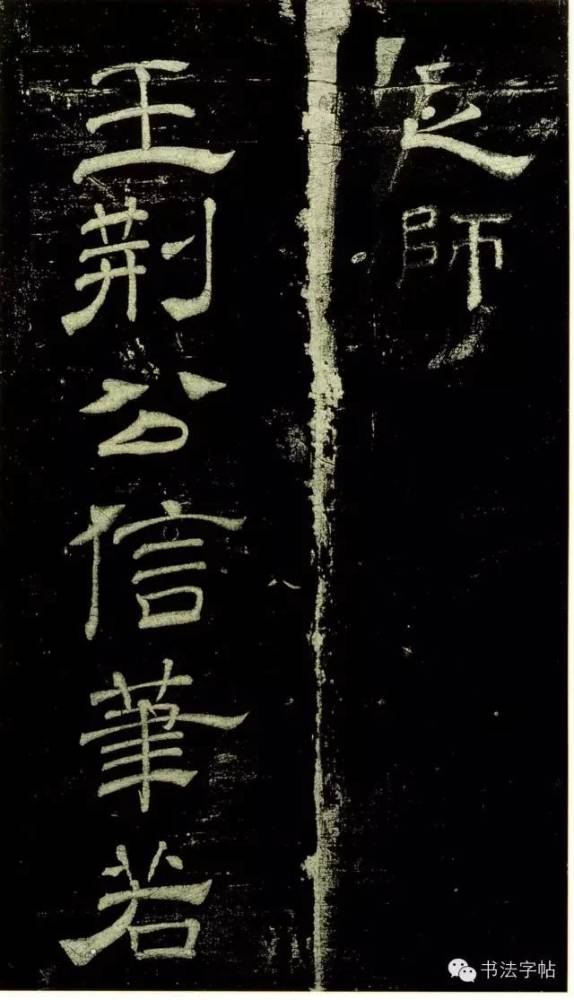 師
八
王荆公信筆若
书法字帖